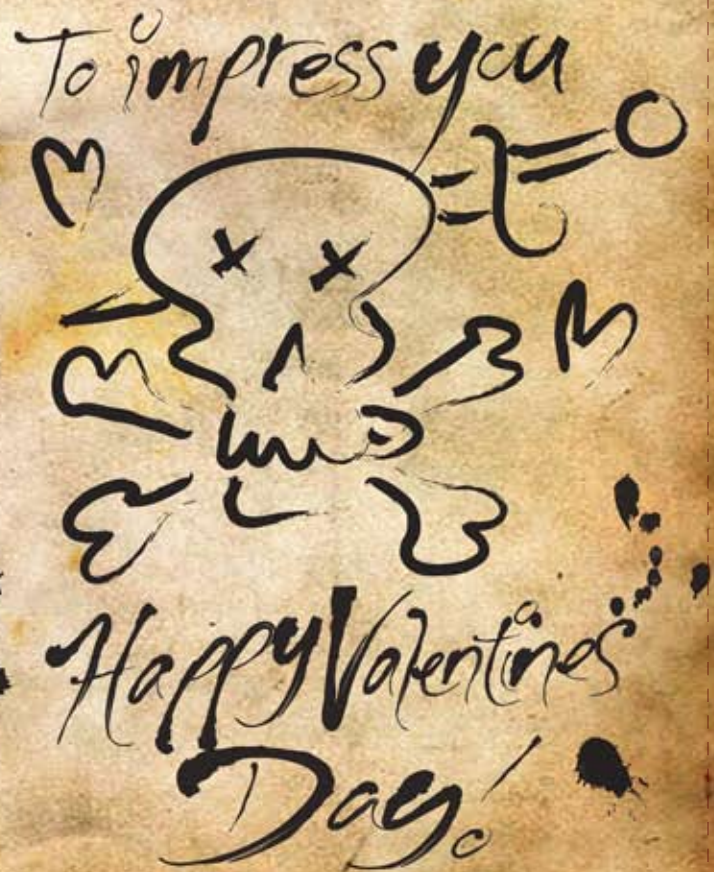 To impress you
Happy Valentines
Day!